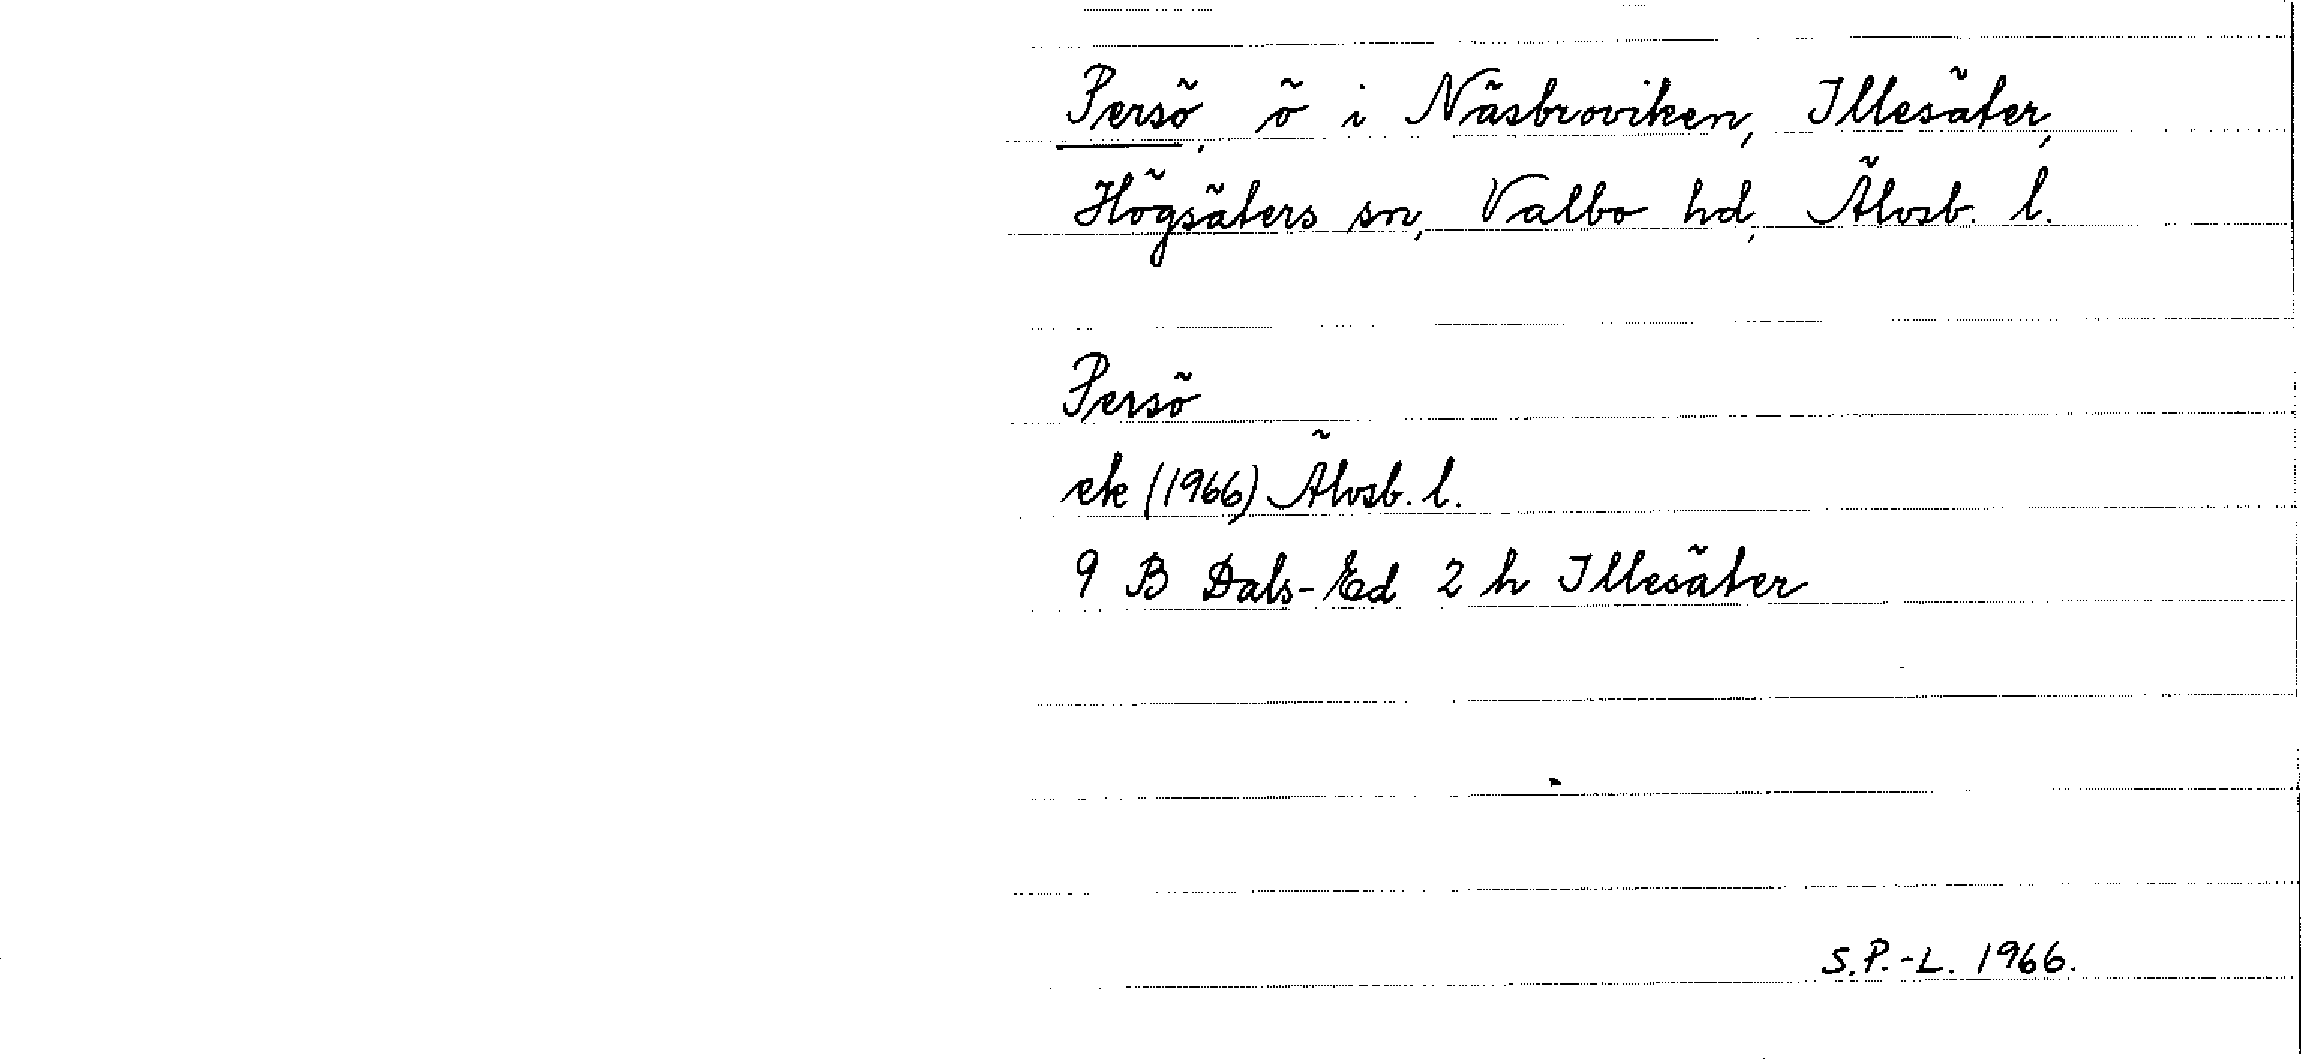 Persö, ö i Näsbroviken, Illesäter,
Högsäters sn, Valbo hd, Älvsb. l.
Persö
ek (1966) Älvsb. l.
9 B Dals-Ed 2 h Illesäter
S.P.-L. 1966.